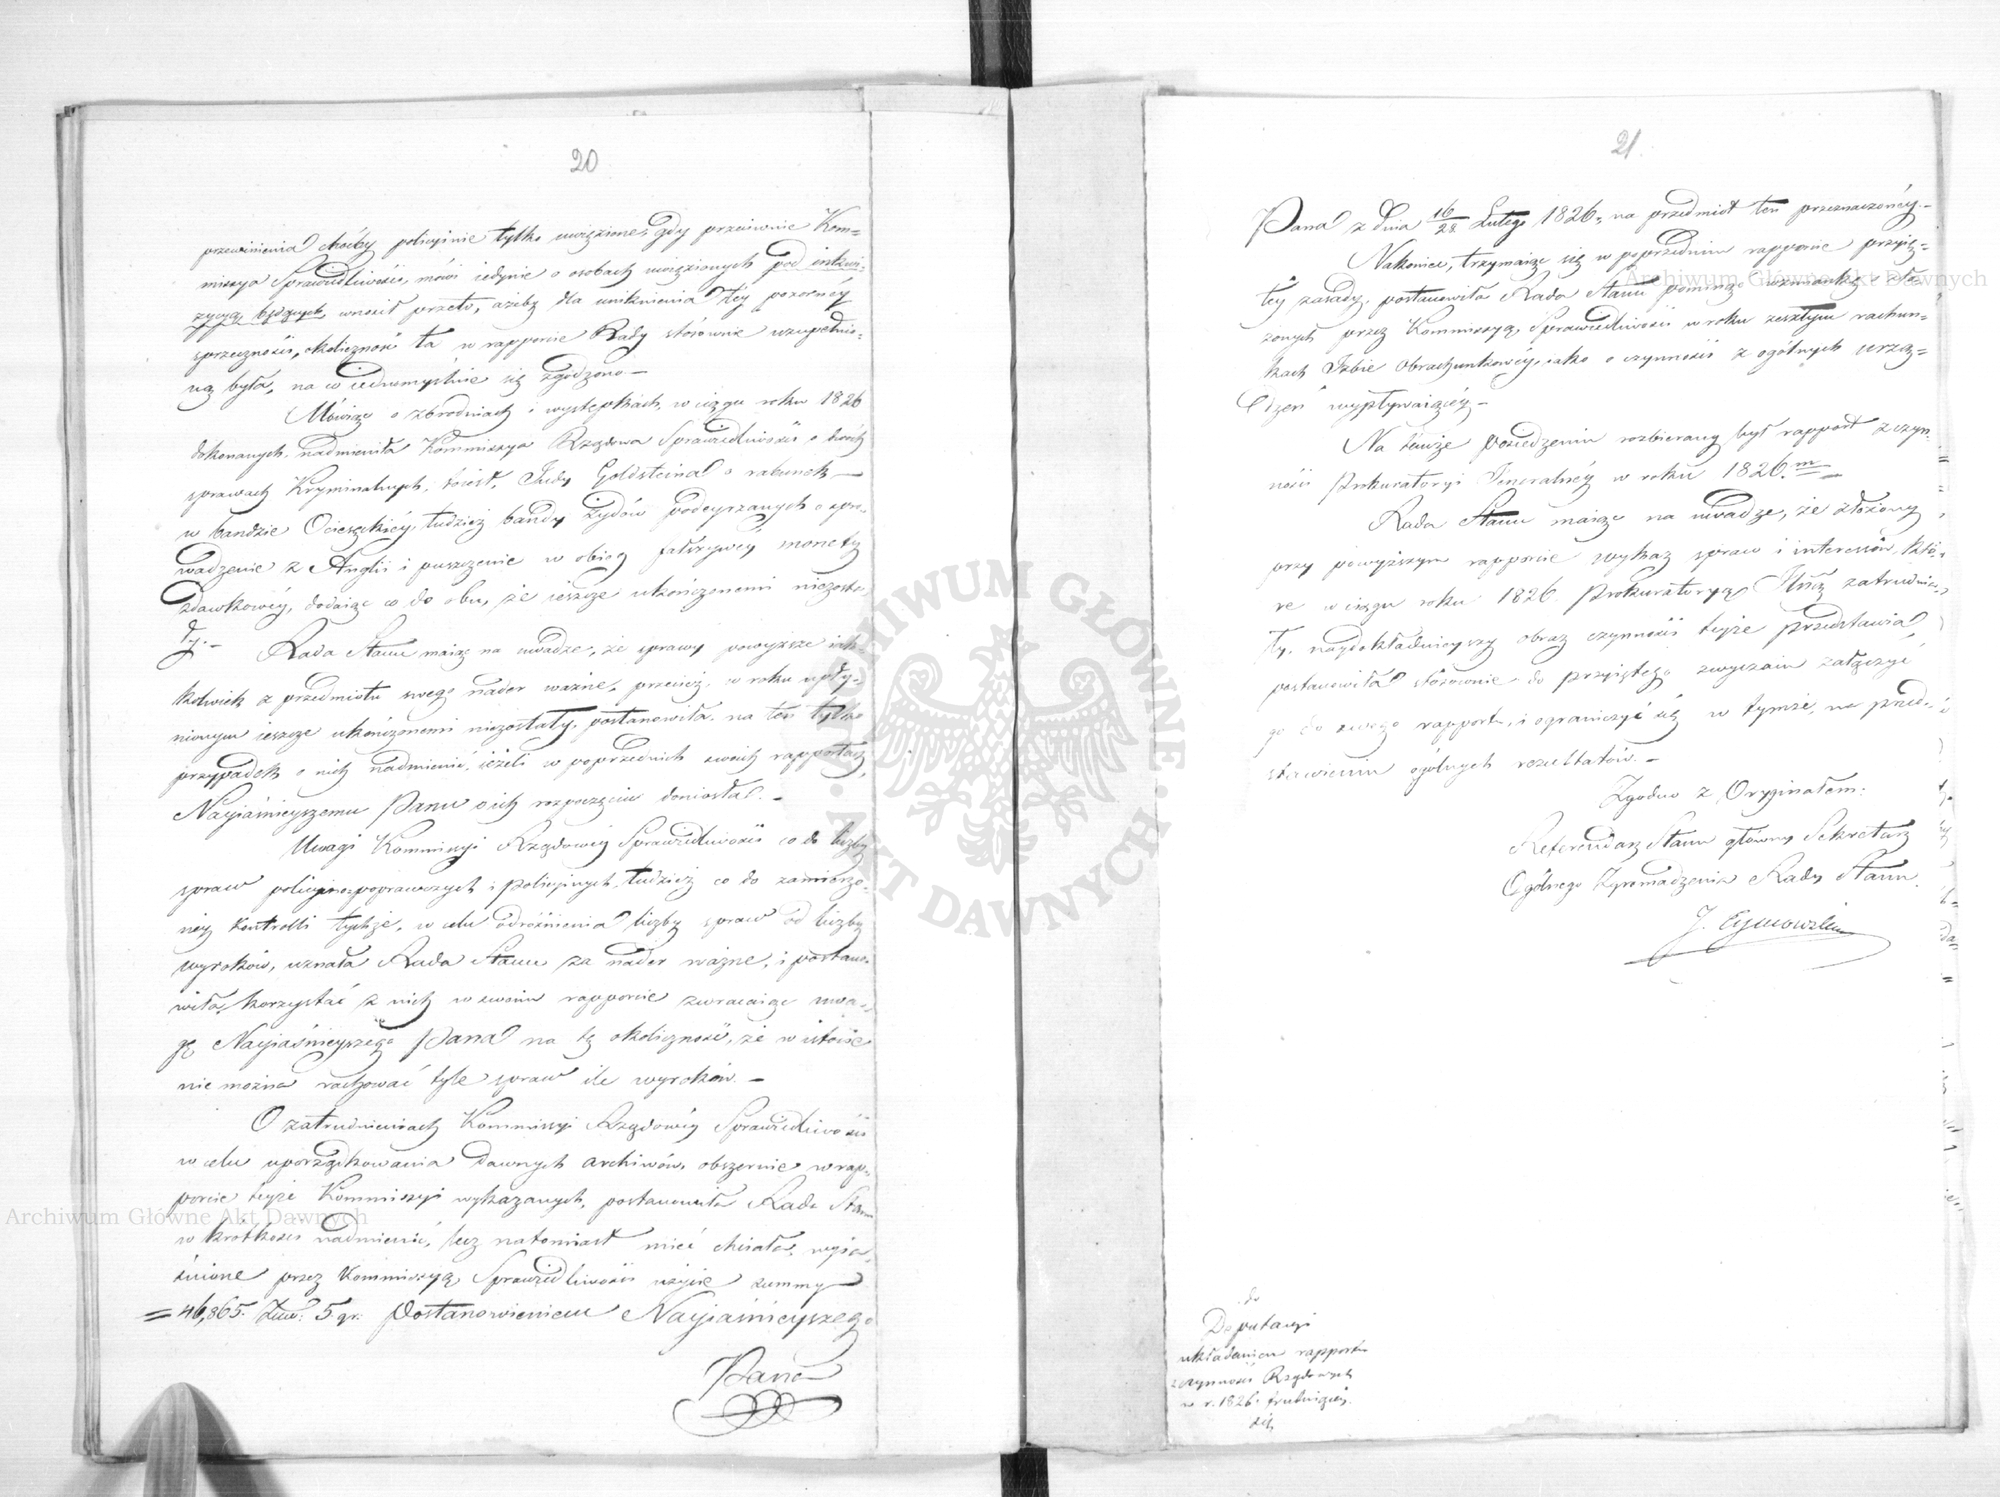 20
przewinienia choćby policyinie tylko uwięzione, gdy przeciwnie Kom=
missya Sprawiedliwości, mówi iedynie o osobach uwięzionych pod inkwi=
zycyą będących, wnosił przeto, ażeby dla uniknienia tey pozornéy
sprzeczności, okoliczność ta w rapporcie Rady stosownie uzupełnio=
ną była, na co iednomyślnie się zgodzono –
Mówiąc o zbrodniach i występkach, w ciągu roku 1826
dokonanych, nadmieniła Kommissya Rządowa Sprawiedliwości o dwóch
sprawach Kryminalnych, to iest, Judy Goldsteina o rabunek –
w bandzie Ociesęckiéy, tudzież bandy Żydów podeyrzanych o spro=
wadzenie z Anglii i puszczenie w obieg fałszywéy monety
zdawkowéy, dodaiąc co do obu, że ieszcze ukończonemi niezosta=
ły. –
Rada Stanu maiąc na uwadze, że sprawy powyższe iak=
kolwiek z przedmiotu swego nader ważne, przecież, w roku upły=
nionym ieszcze ukończonemi niezostały, postanowiła, na ten tylko
przypadek o nich nadmienić, ieżeli w poprzednich swoich rapportach
Nayiaśnieyszemu Panu o ich rozpoczęciu doniosła. –
Uwagi Kommissyi Rządowéy Sprawiedliwości co do liczby
spraw policyino-poprawczych i policyinych, tudzież co do zamierzo=
néy kontrolli tychże, w celu odróżnienia liczby spraw od liczby
wyroków, uznała Rada Stanu za nader ważne, i postano=
wiła, korzystać z nich w swoim rapporcie zwracaiąc uwa=
gę Nayiaśnieyszego Pana na tę okoliczność, że w istocie
nie można rachować tyle spraw ile wyroków. –
O zatrudnieniach Kommissyi Rządowéy Sprawiedliwości
w celu uporządkowania dawnych archiwów, obszernie w rap=
porcie teyże Kommissyi wykazanych, postanowiła Rada Stanu
w krótkości nadmienić, lecz natomiast mieć chciała, wyia=
śnione przez Kommissyą Sprawiedliwości użycie summy
= 46,865. Złłw: 5. gr. Postanowieniem Nayiaśnieyszego
Pana
21.
Pana z Dnia 16/28 Lutego 1826, na przedmiot ten przeznaczonéy. –
Nakoniec, trzymaiąc się w poprzednim rapporcie przyię=
téy zasady, postanowiła Rada Stanu pominąć wzmiankę o zło=
żonych przez Kommissyą Sprawiedliwości w roku zeszłym rachun=
kach Izbie Obrachunkowéy, iako o czynności z ogólnych urzą=
dzeń wypływaiącéy –
Na témże posiedzeniu rozbierany był rapport z czyn=
ności Prokuratoryi Jeneralnéy w roku 1826.m –
Rada Stanu maiąc na uwadze, że złożony
przy powyższym rapporcie wykaz spraw i interessów, któ=
re w ciągu roku 1826 Prokuratoryą zatrudnia=
ły, naydokładnieyszy obraz czynności teyże przedstawia,
postanowiła stósownie do przyiętego zwyczaiu załączyć
go do swego rapportu, i ograniczyć się w tymże, na przed=
stawieniu ogólnych rezultatów. –
Zgodno z Oryginałem:
Referendarz Stanu główny Sekretarz
Ogólnego Zgromadzenia Rady Stanu.
do
Deputacyi
układaniem rapportu
z czynności Rządowych
w r. 1826. trudniącéy
się
Archiwum Główne Akt Dawnych
Archiwum Główne Akt Dawnych
ARCHIWUM GŁÓWNE · AKT DAWNYCH ·